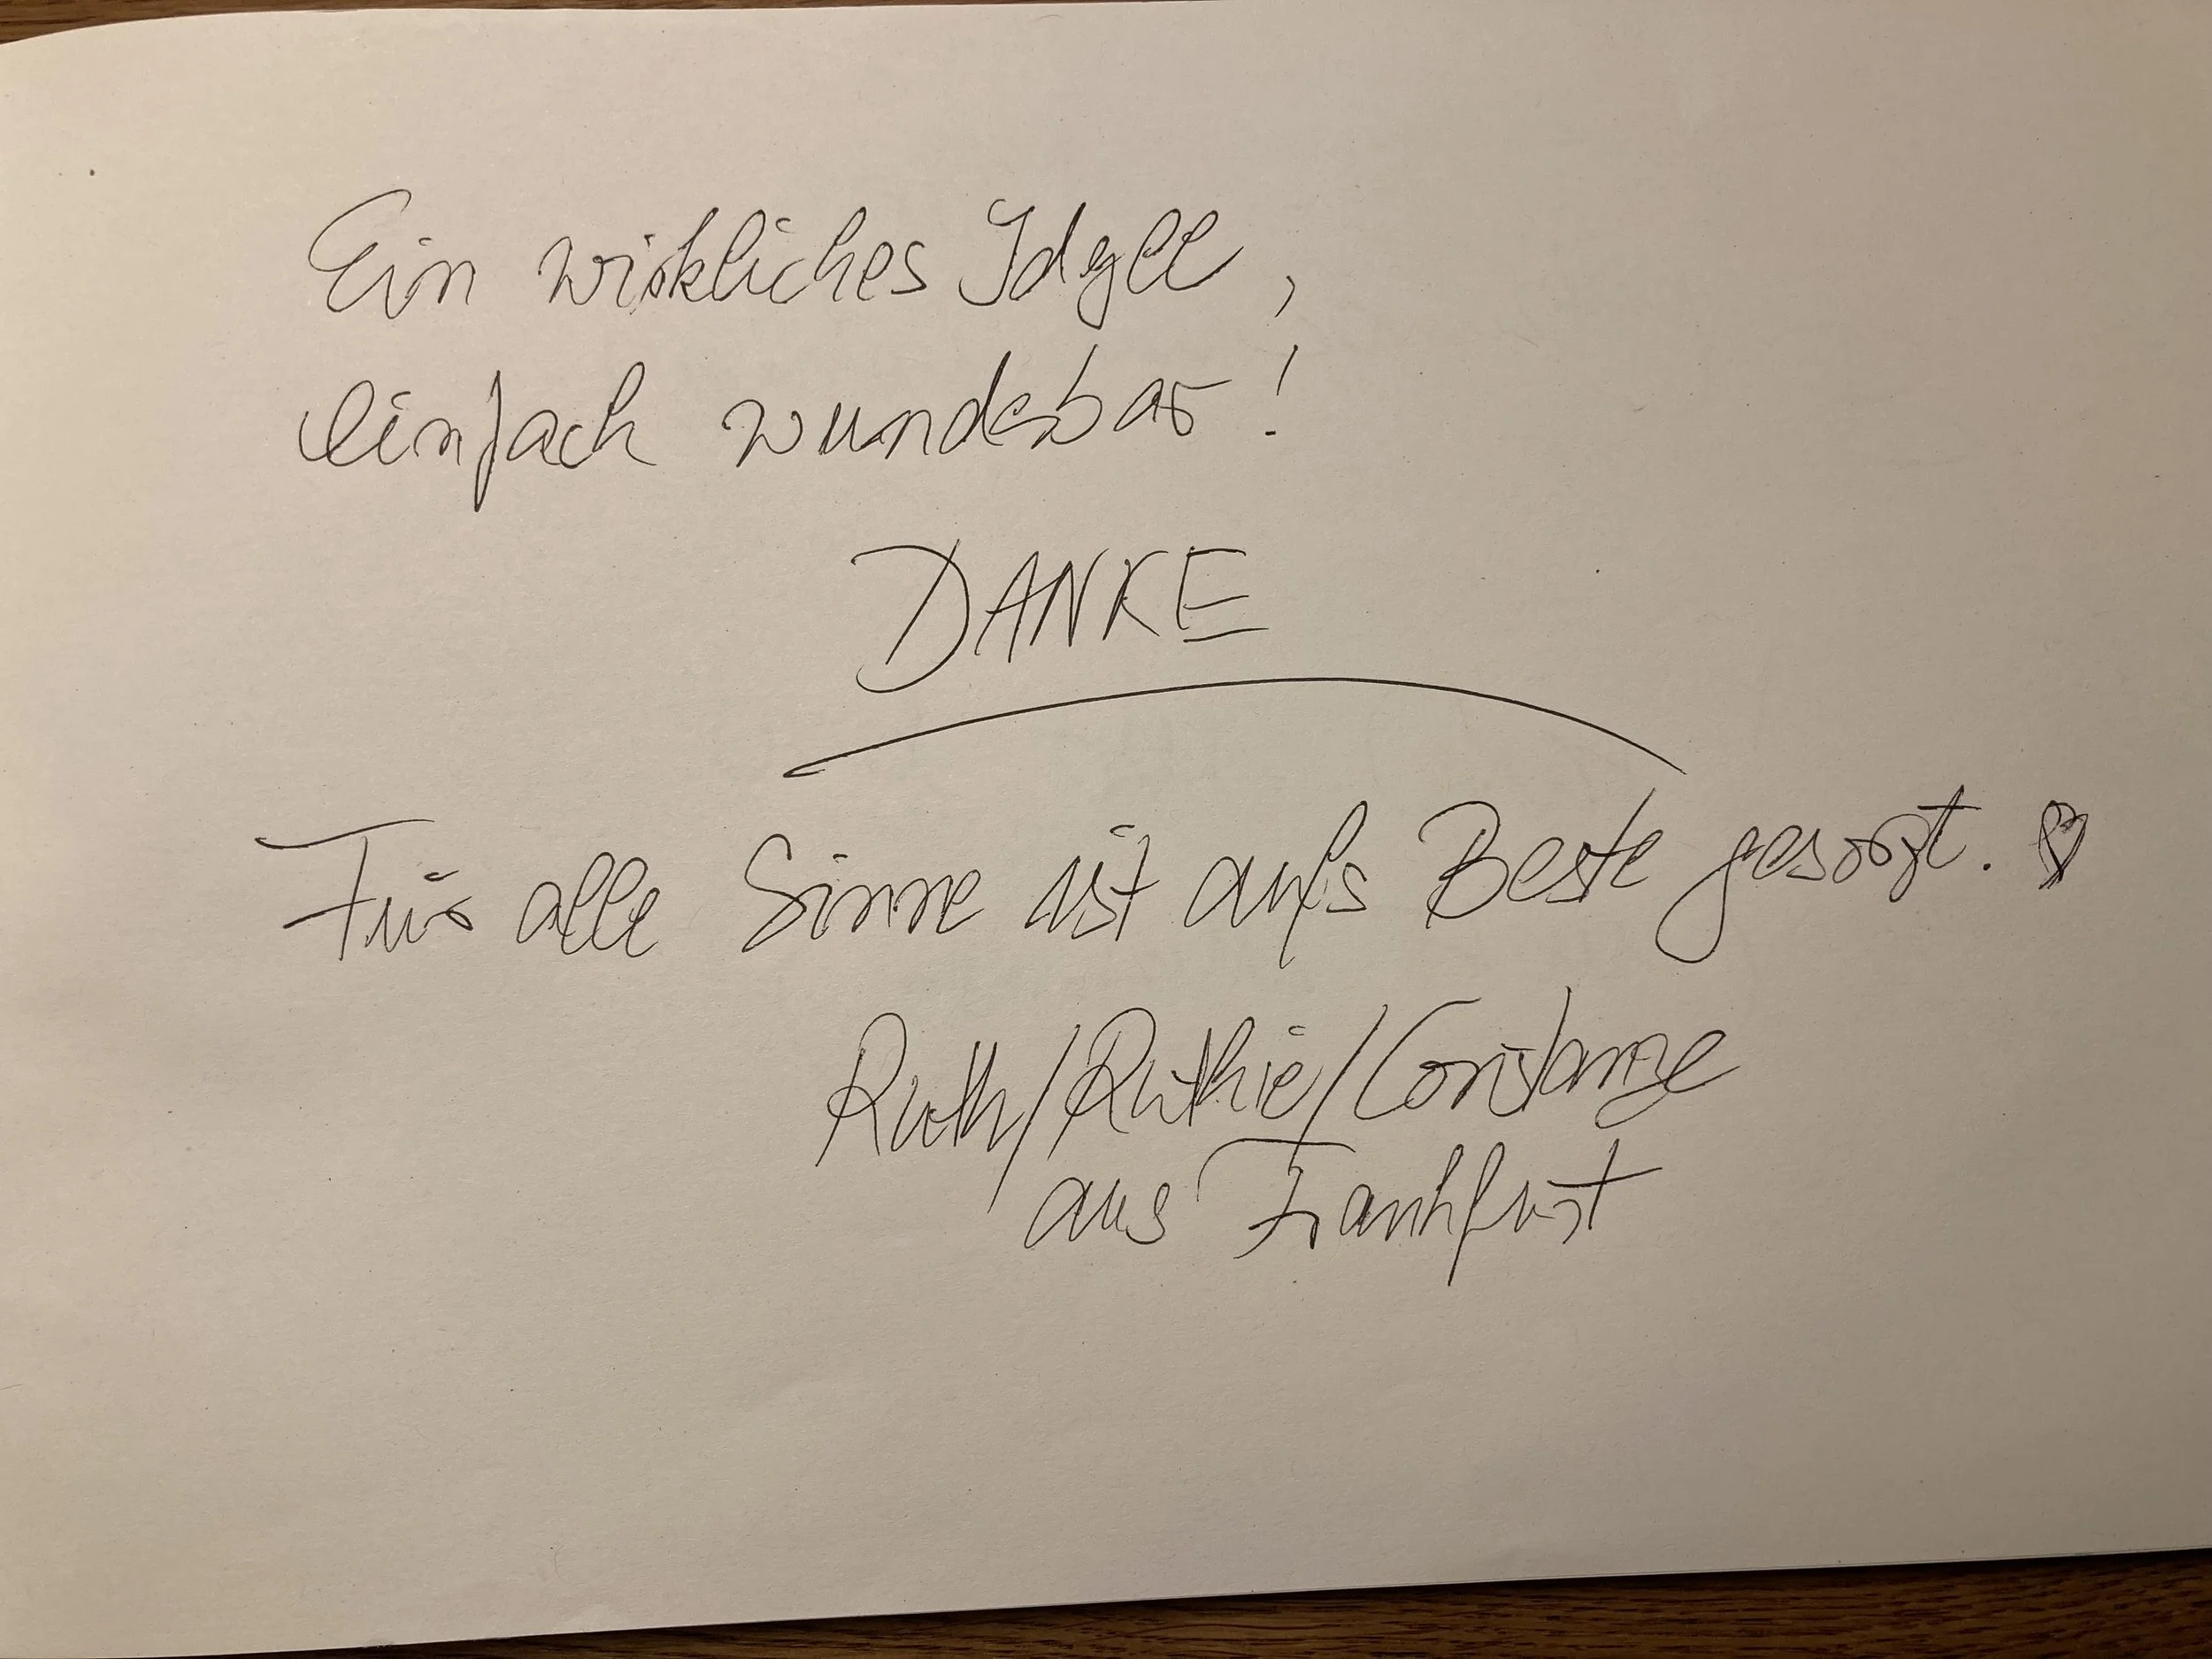 Ein wirkliches Idyll,
einfach wunderbar!
DANKE
Für alle Sinne ist aufs Beste gesorgt. ♡
Ruth/Ruthie/Constanze
aus Frankfurt